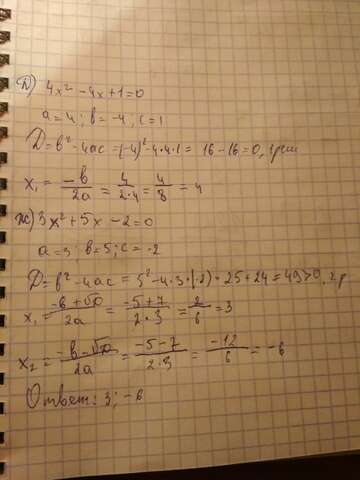 д) 4x² - 4x + 1 = 0
a = 4; b = -4; c = 1
D = b² - 4ac = (-4)² - 4·4·1 = 16 - 16 = 0, 1 реш
x₁ = -b/2a = 4/2·4 = 4/8 = 4
ж) 3x² + 5x - 2 = 0
a = 3; b = 5; c = -2
D = b² - 4ac = 5² - 4·3·(-2) = 25 + 24 = 49 > 0, 2 р
x₁ = -b + √D/2a = -5 + 7/2·3 = 2/6 = 3
x₂ = -b - √D/2a = -5 - 7/2·3 = -12/6 = -6
Ответ: 3; -6